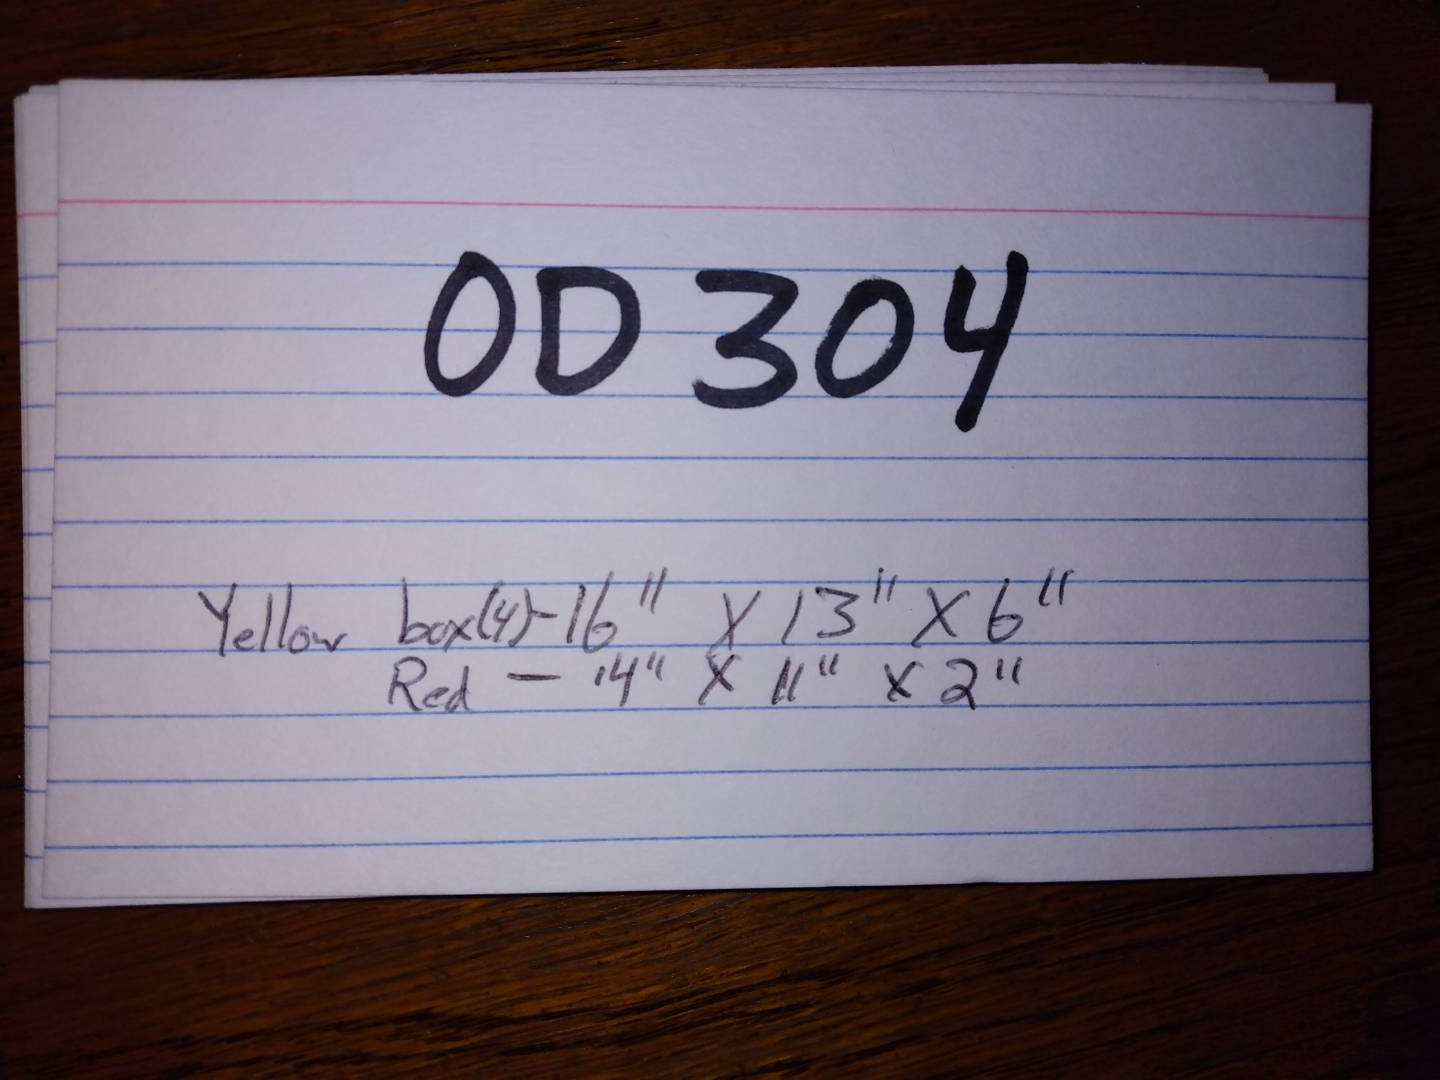 OD 304
Yellow box(4)-16" X 13" X 6"
Red - 14" X 11" X 2"